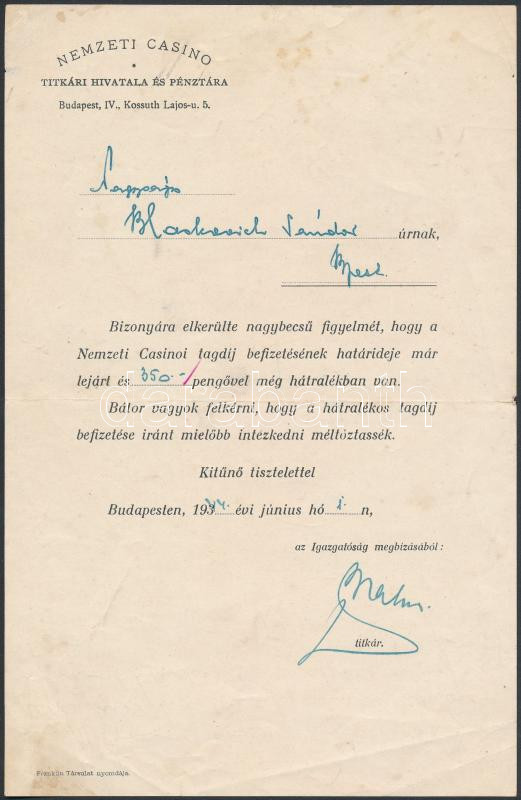 NEMZETI CASINO
TITKÁRI HIVATALA ÉS PÉNZTÁRA
Budapest, IV., Kossuth Lajos-u. 5.
Nagyságos
Blaskovich Sándor úrnak,
Bpest.
Bizonyára elkerülte nagybecsű figyelmét, hogy a
Nemzeti Casinoi tagdíj befizetésének határideje már
lejárt és 350.- pengővel még hátralékban van.
Bátor vagyok felkérni, hogy a hátralékos tagdíj
befizetése iránt mielőbb intézkedni méltóztassék.
Kitűnő tisztelettel
Budapesten, 1944. évi június hó 1. n,
az Igazgatóság megbízásából:
titkár.
Franklin Társulat nyomdája.
darabanth